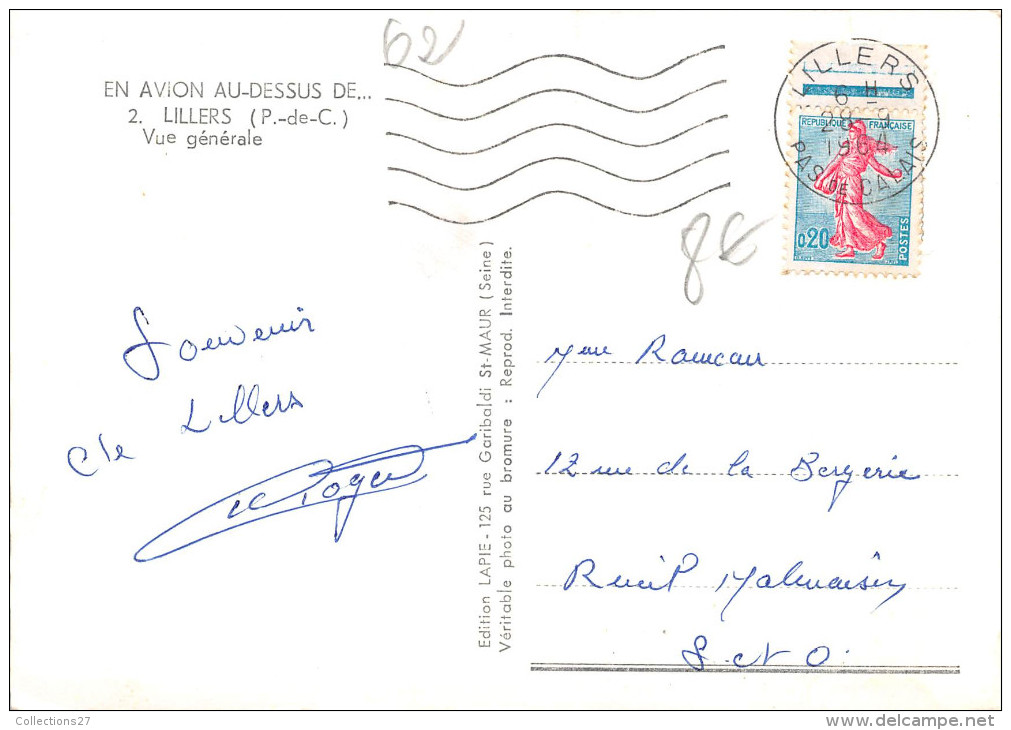 62
EN AVION AU-DESSUS DE...
2. LILLERS (P.-de-C.)
Vue générale
LILLERS
6 H
28-9
1964
PAS DE CALAIS
REPUBLIQUE FRANÇAISE
0,20
POSTES
8€
Souvenir
de Lillers
Roger
Edition LAPIE - 125 rue Garibaldi St-MAUR (Seine)
Véritable photo au bromure : Reprod. Interdite.
Mme
12 rue de la Bergerie
Rueil Malmaison
S. et O.
Collections27
delcampe.net